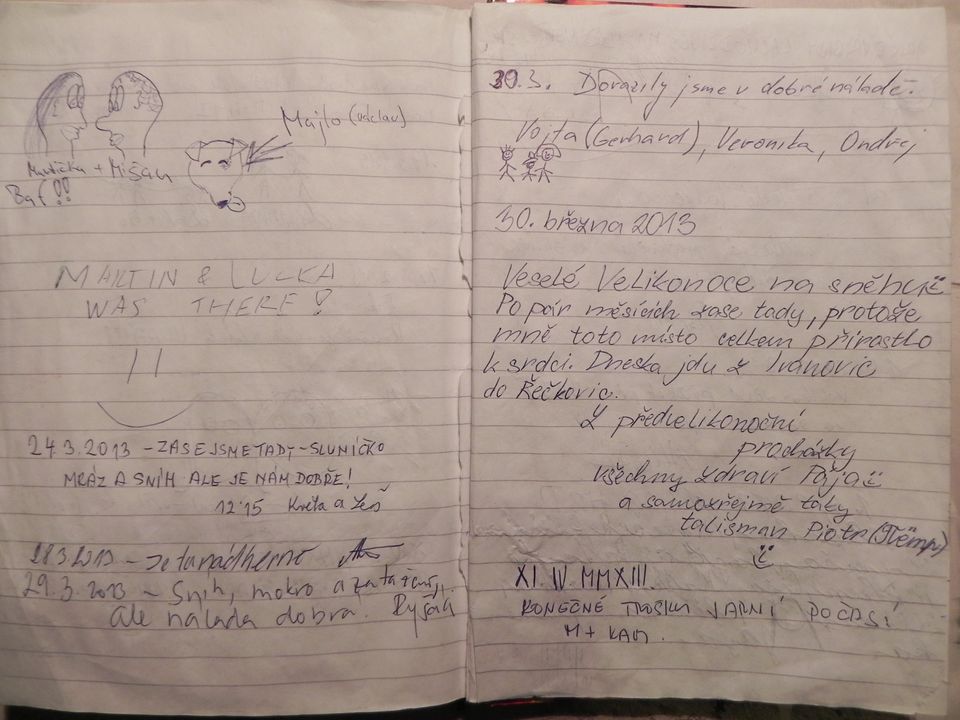 Májlo (václav)
Martička + Mišán
Baf!!
MARTIN & LUCKA
WAS THERE!
24.3.2013 - ZASE JSME TADY - SLUNÍČKO
MRÁZ A SNÍH ALE JE NÁM DOBŘE!
12:15 Květa a Leš
28.3.2013 - Je tu nádherně
29.3.2013 - Sníh, mokro a zataženo,
Ale nálada dobrá. Ryšáá
30.3. Dorazily jsme v dobré náladě.
Vojta (Gerhard), Veronika, Ondřej
30. března 2013
Veselé Velikonoce na sněhu
Po pár měsících zase tady, protože
mně toto místo celkem přirostlo
k srdci. Dneska jdu z Ivanovic
do Řečkovic.
Z předvelikonoční
procházky
všechny zdraví Pája
a samozřejmě taky
talisman Piotr (Tlemp)
XI. IV. MMXIII.
KONEČNĚ TROŠKU JARNÍ POČASÍ
M + KAM.